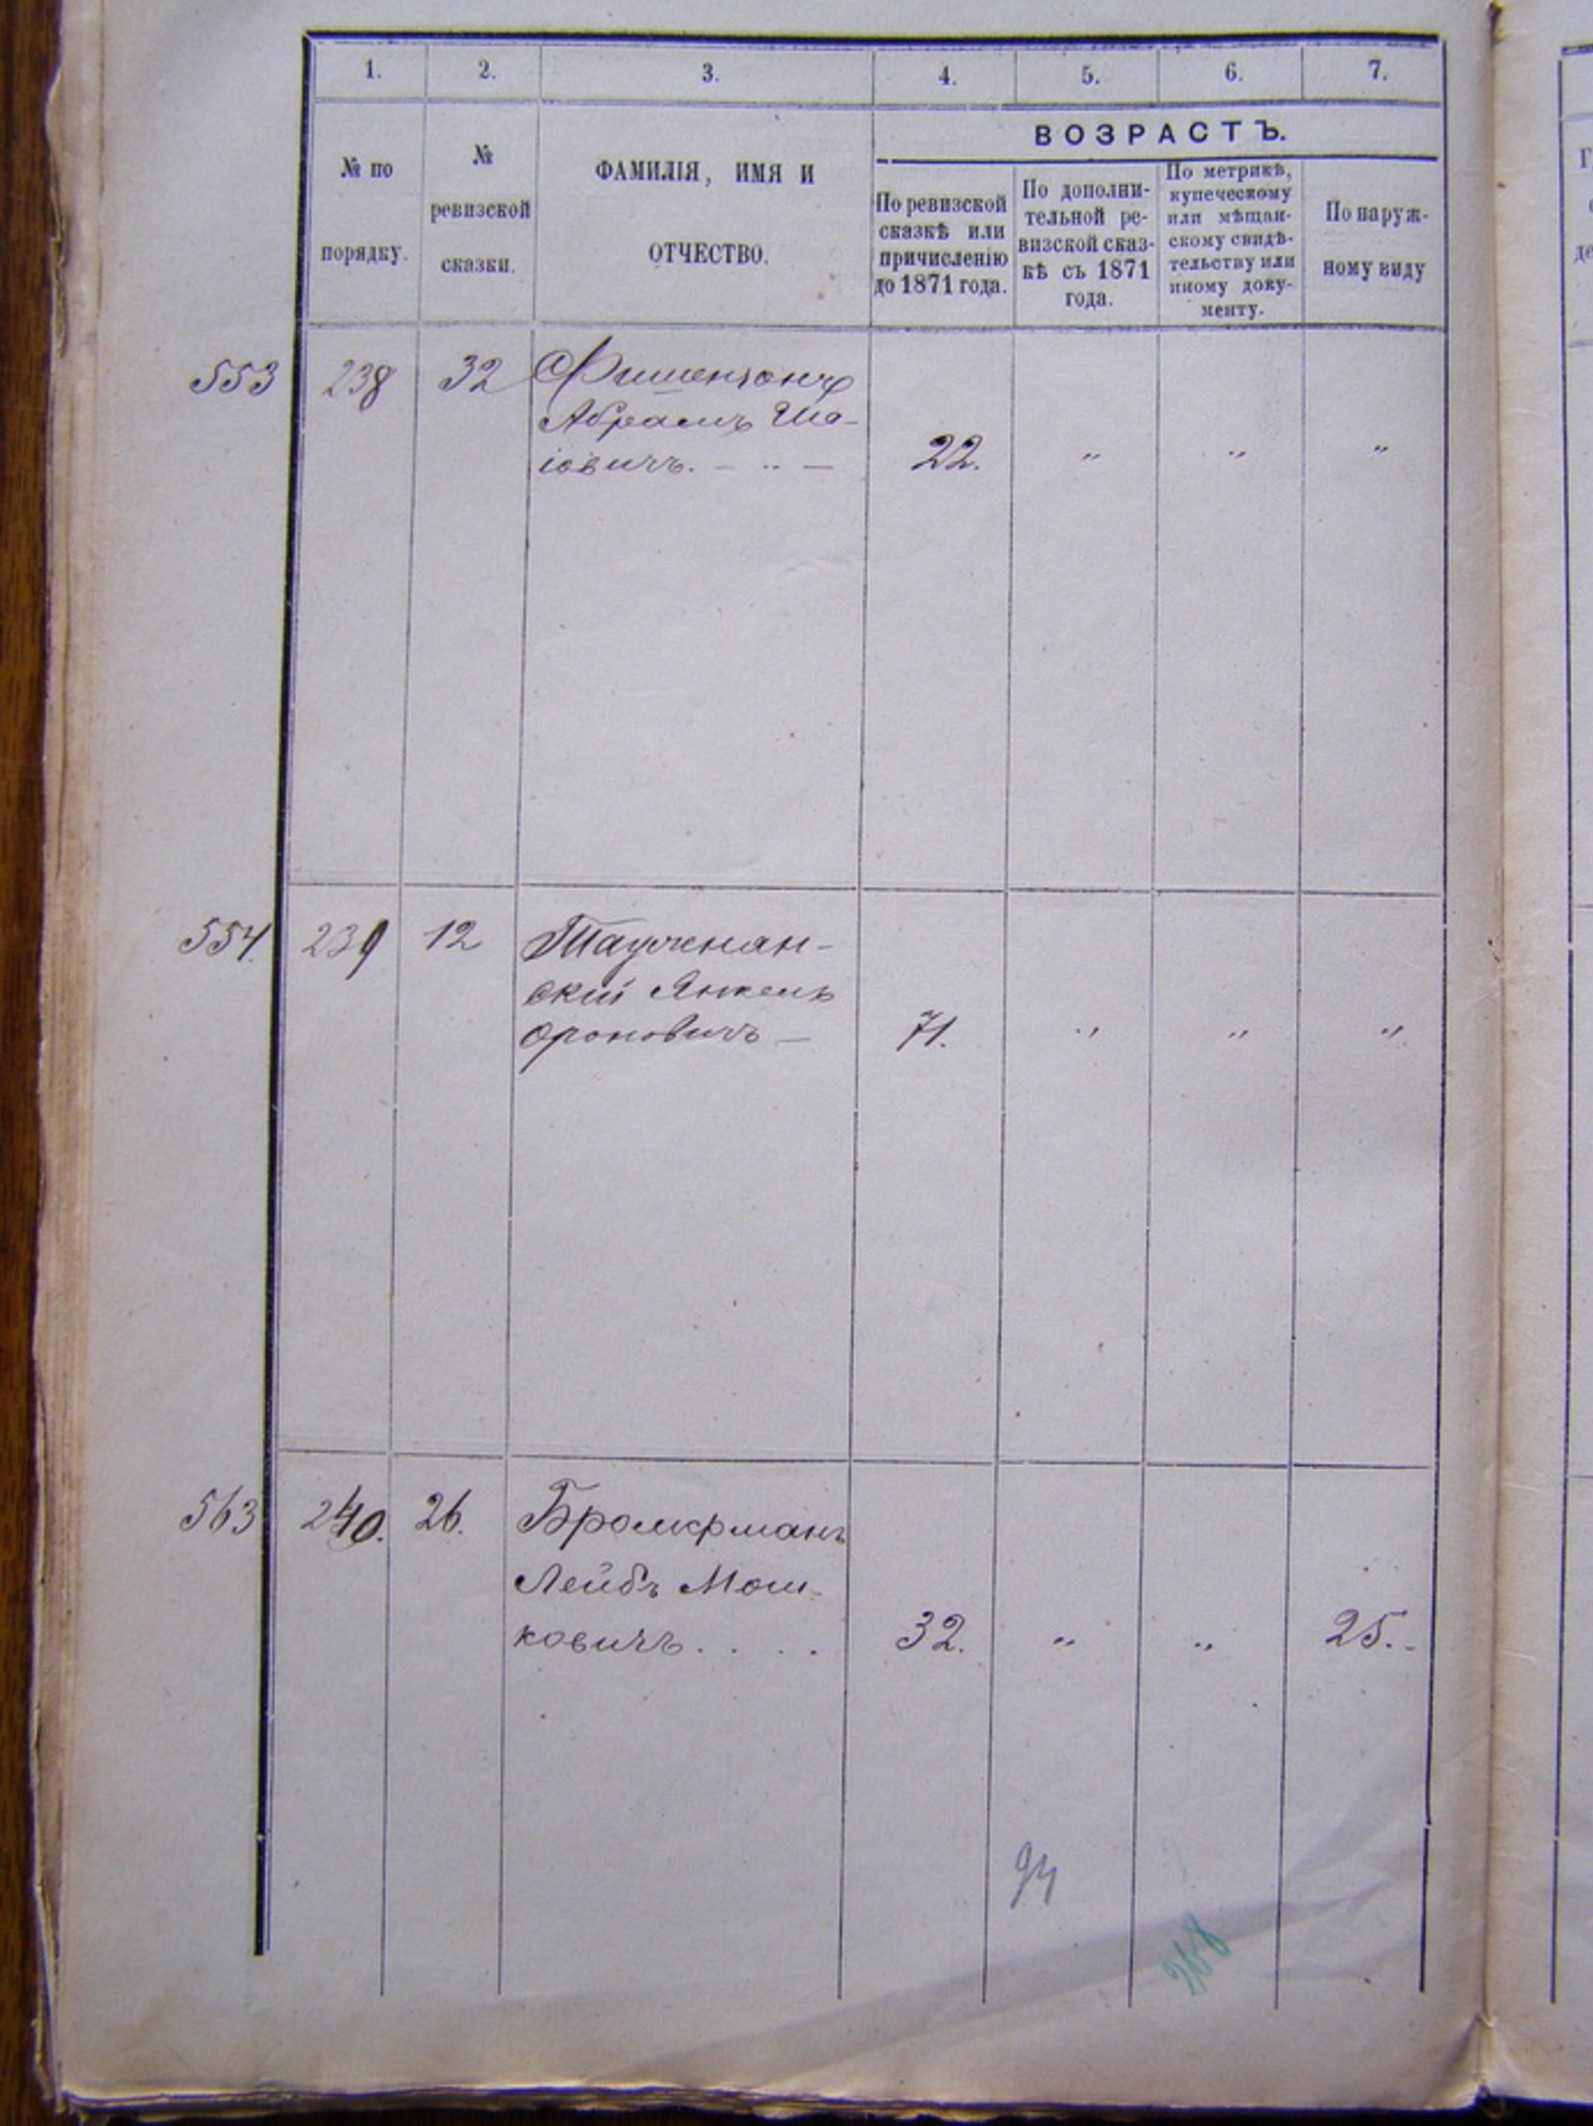 1. 2. 3. 4. 5. 6. 7.
№ по порядку.
№ ревизской сказки.
ФАМИЛІЯ, ИМЯ И
ОТЧЕСТВО.
ВОЗРАСТЪ.
По ревизской
сказкѣ или
причисленію
до 1871 года.
По дополни-
тельной ре-
визской сказ-
кѣ съ 1871
года.
По метрикѣ,
купеческому
или мѣщан-
скому свидѣ-
тельству или
иному доку-
менту.
По наруж-
ному виду
553 238 32
Абрамъ Ша-
іовичъ. — „ — 22. „ „ „
554. 239 12
скій Янкель
Ороновичъ — 71. „ „ „
563 240. 26.
Лейбъ Мош-
ковичъ . . . . 32. „ „ 25. -
94
268